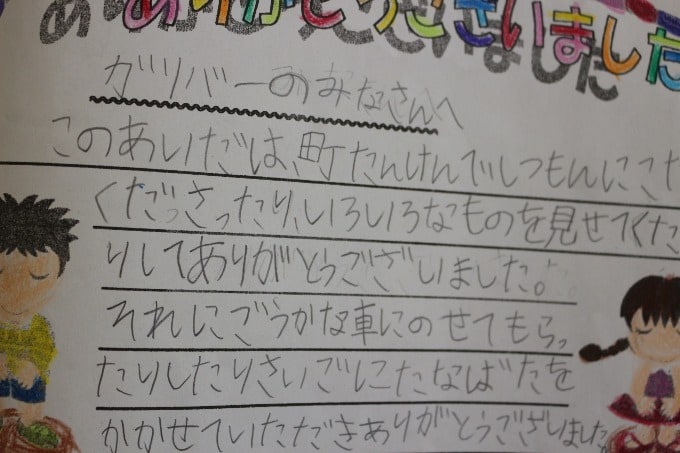 ありがとうございました
ガリバーのみなさんへ
このあいだは、町たんけんでしつもんにこた
くださったり、いろいろなものを見せてくださ
りしてありがとうございました。
それにごうかな車にのせてもらっ
たりしたりさいごにたなばたを
かかせていただきありがとうございました。